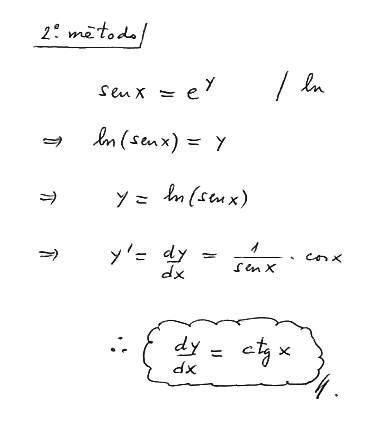 2º método/
sen x = e^y / ln
⇒ ln(sen x) = y
⇒ y = ln(sen x)
⇒ y' = dy/dx = 1/sen x · cos x
∴ dy/dx = ctg x //.